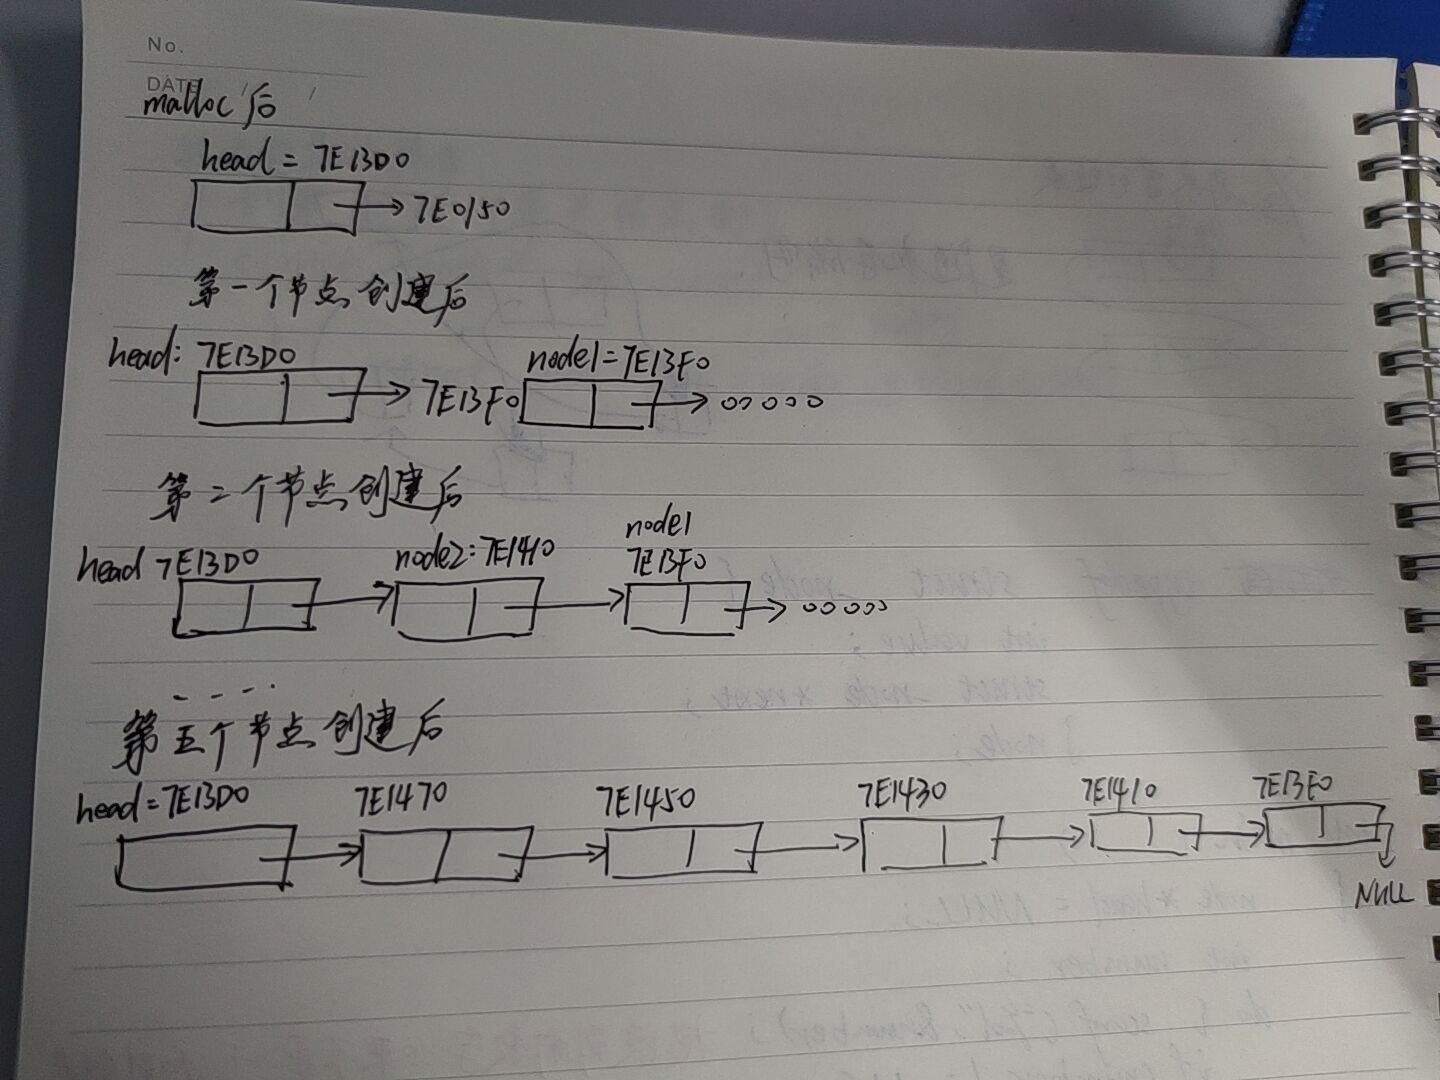 No.
DATE / /
malloc后
head = 7E13D0
7E0150
第一个节点创建后
head: 7E13D0 node1=7E13F0
7E13F0 00000
第二个节点创建后
node1
head 7E13D0 node2:7E1410 7E13F0
00000
- - - -
第五个节点创建后
head=7E13D0 7E1470 7E1450 7E1430 7E1410 7E13F0
NULL